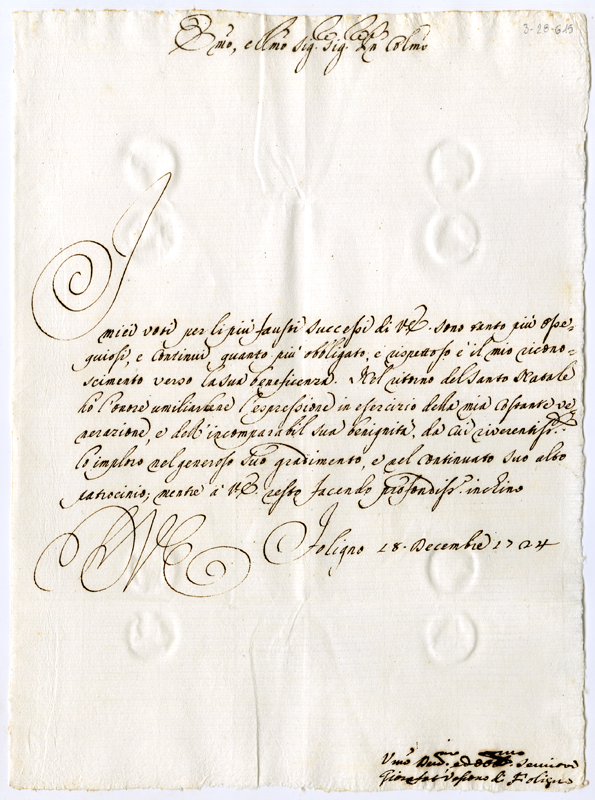 3-28-615
Emo, e Rmo Sig. Sig. Prn Colmo
I
miei voti per li più fausti successi di V.E. sono tanto più osse-
quiosi, e continui, quanto più obbligato, e rispettoso è il mio ricono-
scimento verso la sua beneficenza. Nel ritorno del Santo Natale
hò l'onore umiliarlene l'espressione in esercizio della mia costante ve-
nerazione, e dell'incomparabil sua benignità, da cui riverentiss.te
l'imploro nel generoso suo gradimento, e nel continuato suo alto
patrocinio; mentre à V.E. resto facendo profondiss.o inchino
D V E
Foligno 18. Decembre 1724
Vmo Dmo ed Obbmo Servitore
Vescovo di Foligno